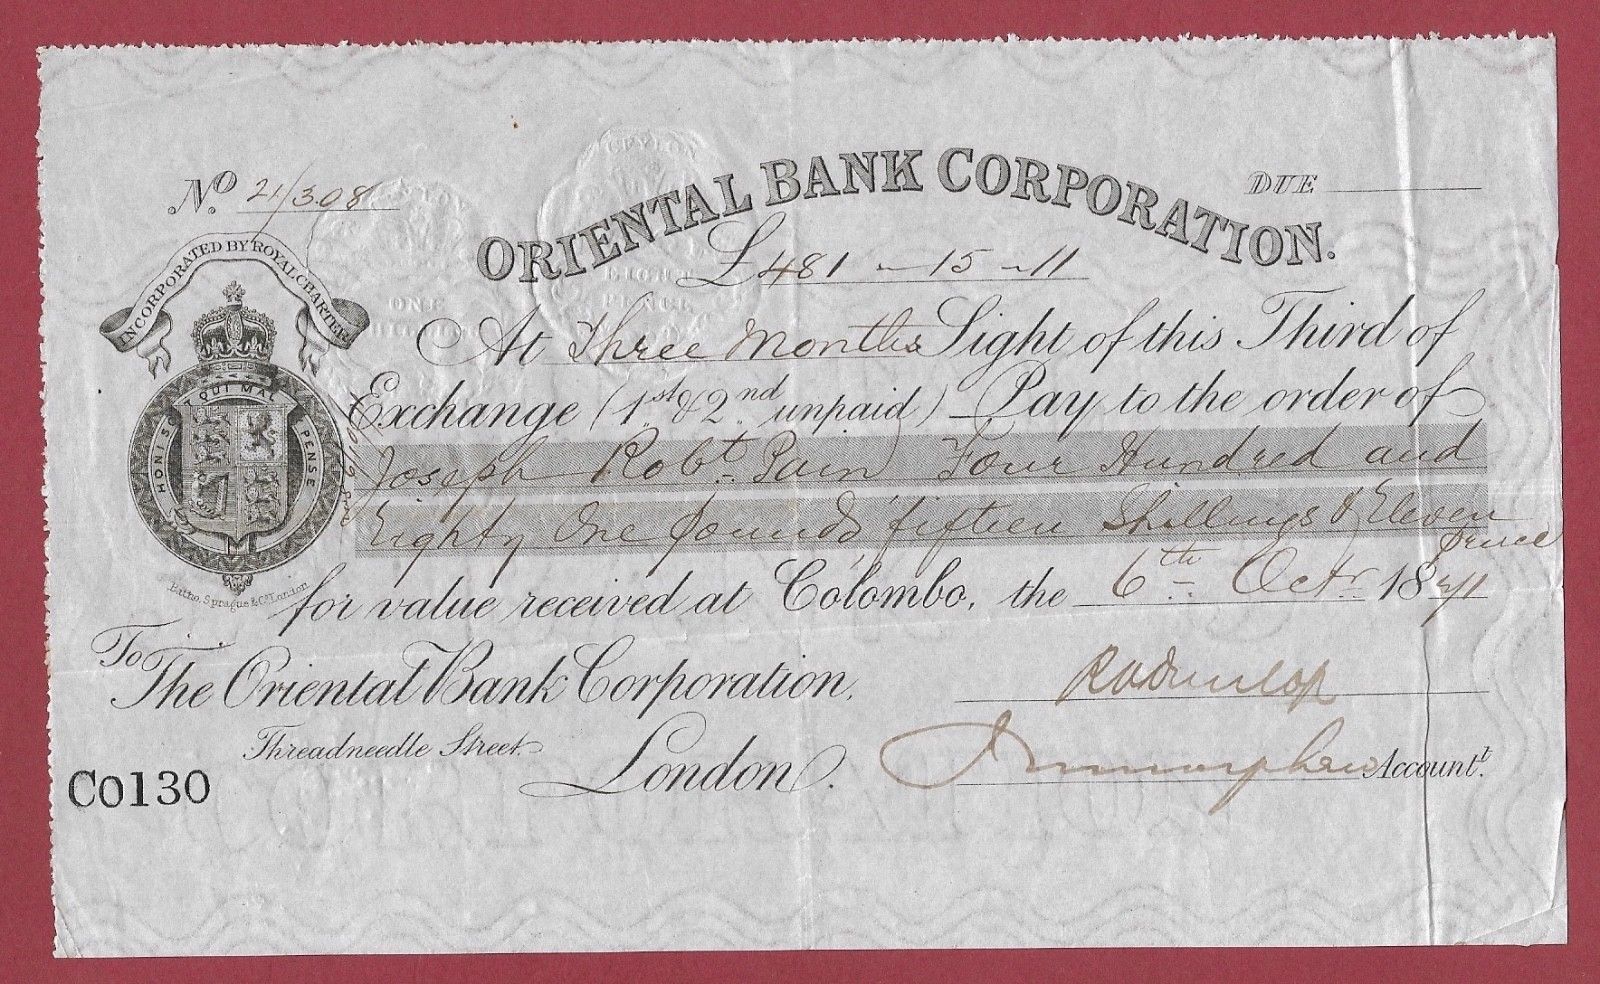 ORIENTAL BANK CORPORATION.
No. 21/308
DUE
£481-15-11
INCORPORATED BY ROYAL CHARTER
CEYLON
EIGHT
PENCE
ONE
At Three Months Sight of this Third of
Exchange (1st & 2nd unpaid) Pay to the order of
HONI SOIT QUI MAL PENSE
Joseph Robt. Pain Four Hundred and
Eighty One pounds fifteen Shillings & Eleven
pence
for value received at Colombo, the 6th Octr. 1871
Batho, Sprague & Co. London
To
The Oriental Bank Corporation,
R Dunlop
Threadneedle Street.
London.
Accountt.
CO130